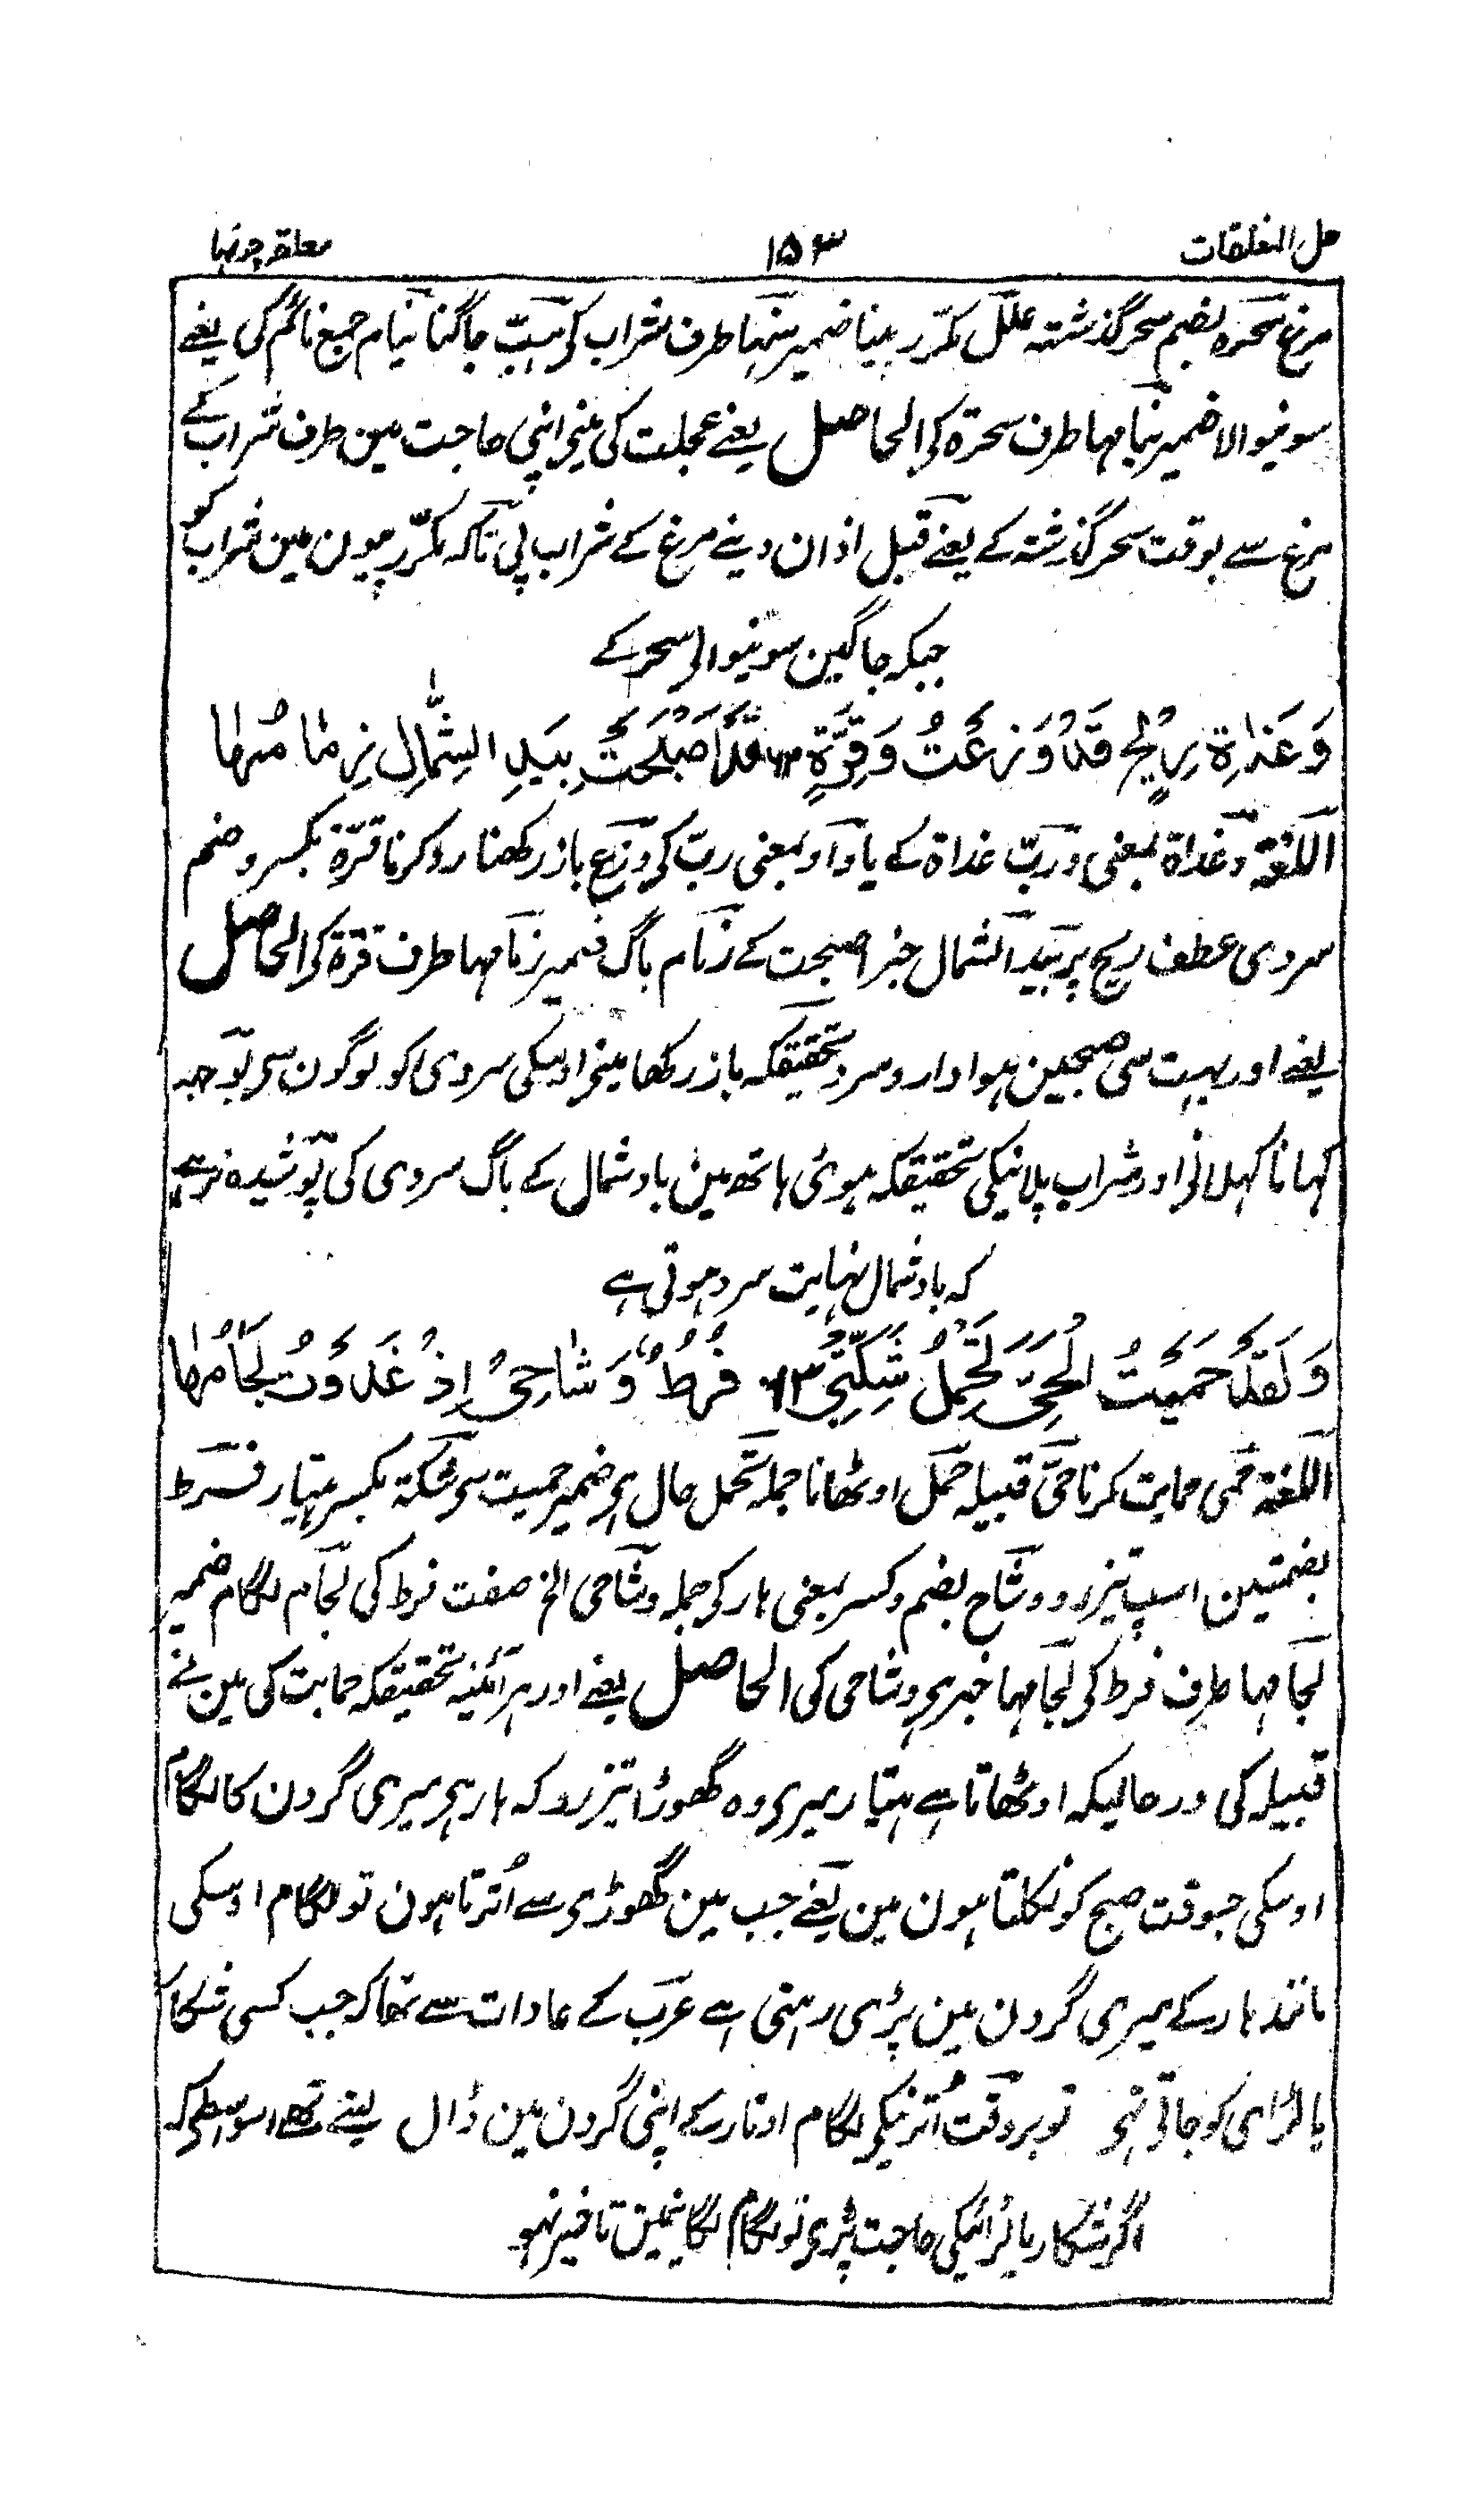 حل المغلقات ۱۵۳ معلقہ چوتہا
مرغ سحرہ بضم سحر گذشتہ علل مکرّر پینا ضمیر منہا طرف شراب کی ہبت جاگنا نیام جمع نائم کی یعنے
سونیوالا ضمیر نیامہا طرف سحرۃ کی الحاصل یعنے عجلت کی مینی اپنی حاجت مین طرف شراب کے
مرغ سے بوقت سحر گذشتہ کے یعنے قبل اذان دینے مرغ کے شراب پی تاکہ مکرّر پیون مین شراب کو
جبکہ جاگین سونیوالی سحر کے
وَغَدَاةِ رِيْحٍ قَدْ وَزَعْتُ وَقِرَّةٍ ۶۲ قَدْ اَصْبَحَتْ بِيَدِ الشِّمَالِ زِمَامُهَا
اللغۃ وغداۃ بمعنی ورُبّ غداۃ کے یا واو بمعنی ربّ کی وزع باز رکھنا روکرنا قرّۃ بکسر وضم
سردی عطف ریح پر بید الشمال خبر اصبحت کے زمام باگ ضمیر زمامہا طرف قرۃ کی الحاصل
یعنے اور بہت سی صبحین ہوادار و سرد تحقیقکہ باز رکھا مینی اوسکی سردی کو لوگون سی بوجہ
کہانا کہلانی اور شراب پلانیکی تحقیقکہ ہوئی ہاتھ مین باد شمال کے باگ سردی کی پوشیدہ نرہے
کہ باد شمال نہایت سرد ہوتی ہے
وَلَقَدْ حَمَيْتُ الْحَيَّ تَحْمِلُ شِكَّتِيْ ۶۳ فُرُطٌ وِشَاحِيْ اِذْ غَدَوْتُ لِجَامُهَا
اللغۃ حمی حمایت کرنا حیّ قبیلہ حمل اوٹھانا جملہ تحمل حال ہی ضمیر حمیت سی شکۃ بکسر ہتیار فرط
بضمتین اسپ تیزرو وشاح بضم وکسر بمعنی ہار کی جملہ وشاحی الخ صفت فرط کی لجام لگام ضمیر
لجامہا طرف فرط کی لجامہا خبر ہی وشاحی کی الحاصل یعنے اور ہر آئینہ تحقیقکہ حمایت کی مین نے
قبیلہ کی درحالیکہ اوٹھاتا ہے ہتیار میری وہ گھوڑا تیزرو کہ ہار ہی میری گردن کا لگام
اوسکی جسوقت صبح کو نکلتا ہون مین یعنے جب مین گھوڑی سے اُترتا ہون تو لگام اوسکی
مانند ہار کے میری گردن مین پڑی رہتی ہے عرب کے عادات سے تھا کہ جب کسی شکار
یا لڑای کو جاتی تہی تو بروقت اُترنیکی لگام اوتار کے اپنی گردن مین ڈال لیتے تھے اسواسطی کہ
اگر شکار یا لڑائیکی حاجت پڑی تو لگام لگانیمین تاخیر نہو